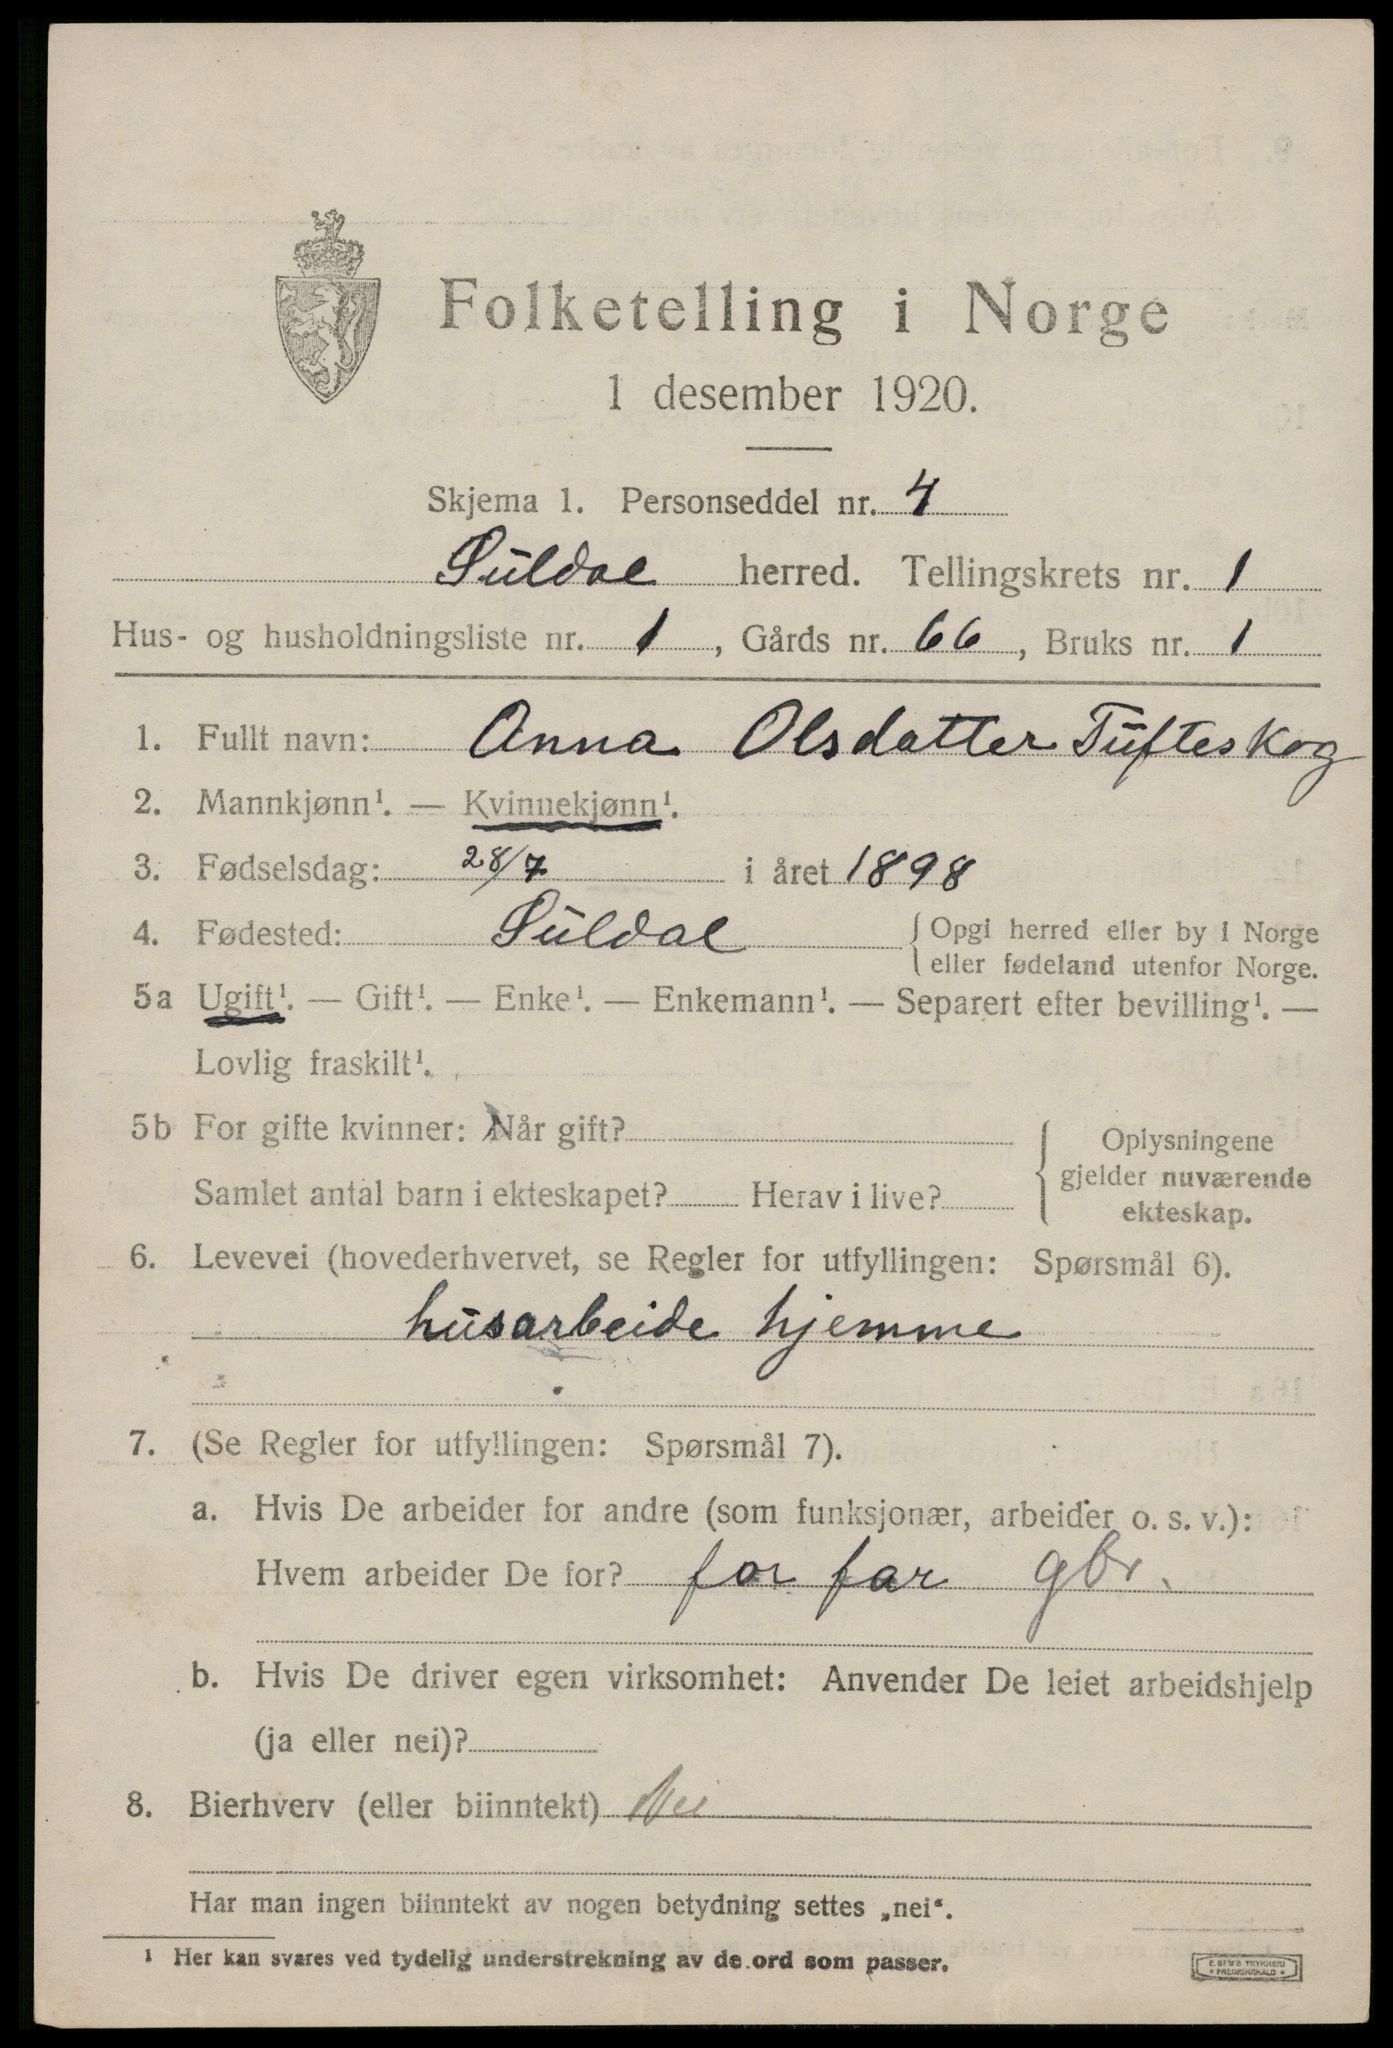 Folketelling i Norge
1 desember 1920.
Skjema 1. Personseddel nr. 4
Suldal herred. Tellingskrets nr. 1
Hus- og husholdningsliste nr. 1, Gårds nr. 66, Bruks nr. 1
1. Fullt navn: Anna Olsdatter Tufteskog
2. Mannkjønn¹. — Kvinnekjønn¹.
3. Fødselsdag: 28/7 i året 1898
4. Fødested: Suldal { Opgi herred eller by i Norge
eller fødeland utenfor Norge.
5a Ugift¹. — Gift¹. — Enke¹. — Enkemann¹. — Separert efter bevilling¹. —
Lovlig fraskilt¹.
5b For gifte kvinner: Når gift?
Samlet antal barn i ekteskapet? Herav i live?
Oplysningene
gjelder nuværende
ekteskap.
6. Levevei (hovederhvervet, se Regler for utfyllingen: Spørsmål 6).
husarbeide hjemme
7. (Se Regler for utfyllingen: Spørsmål 7).
a. Hvis De arbeider for andre (som funksjonær, arbeider o. s. v.):
Hvem arbeider De for? for far gbr.
b. Hvis De driver egen virksomhet: Anvender De leiet arbeidshjelp
(ja eller nei)?
8. Bierhverv (eller biinntekt) Nei
Har man ingen biinntekt av nogen betydning settes „nei“.
¹ Her kan svares ved tydelig understrekning av de ord som passer.
E. SEM'S TRYKKERI
• FREDRIKSHALD •